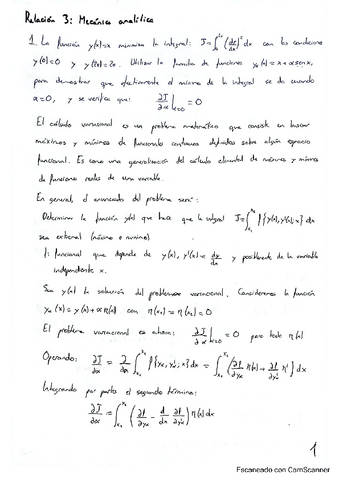 Relación 3: Mecánica analítica
1. La función y(x)=x minimiza la integral: J=∫ (dy/dx)² dx con las condiciones
y(0)=0 y y(2π)=2π. Utilizar la familia de funciones yα(x)=x+α sen x,
para demostrar que efectivamente el mínimo de la integral se da cuando
α=0, y se verifica que: ∂J/∂α|α=0 = 0
El cálculo variacional es un problema matemático que consiste en buscar
máximos y mínimos de funcionales continuos definidos sobre algún espacio
funcional. Es como una generalización del cálculo elemental de máximos y mínimos
de funciones reales de una variable.
En general, el enunciado del problema será:
Determinar la función y(x) que hace que la integral J=∫x₁^x₂ f{y(x), y'(x); x} dx
sea extremal (máximo o mínimo)
f: funcional que depende de y(x), y'(x)=dy/dx y posiblemente de la variable
independiente x.
Sea y(x) la solución del problema variacional. Consideremos la función
yα(x) = y(x) + α η(x) con η(x₁) = η(x₂) = 0
El problema variacional es ahora: ∂J/∂α|α=0 = 0 para todo η(x)
Operando: ∂J/∂α = ∂/∂α ∫x₁^x₂ f{yα, yα'; x} dx = ∫x₁^x₂ (∂f/∂yα η(x) + ∂f/∂yα' η') dx
Integrando por partes el segundo término:
∂J/∂α = ∫x₁^x₂ (∂f/∂yα - d/dx ∂f/∂yα') η(x) dx
1
Escaneado con CamScanner